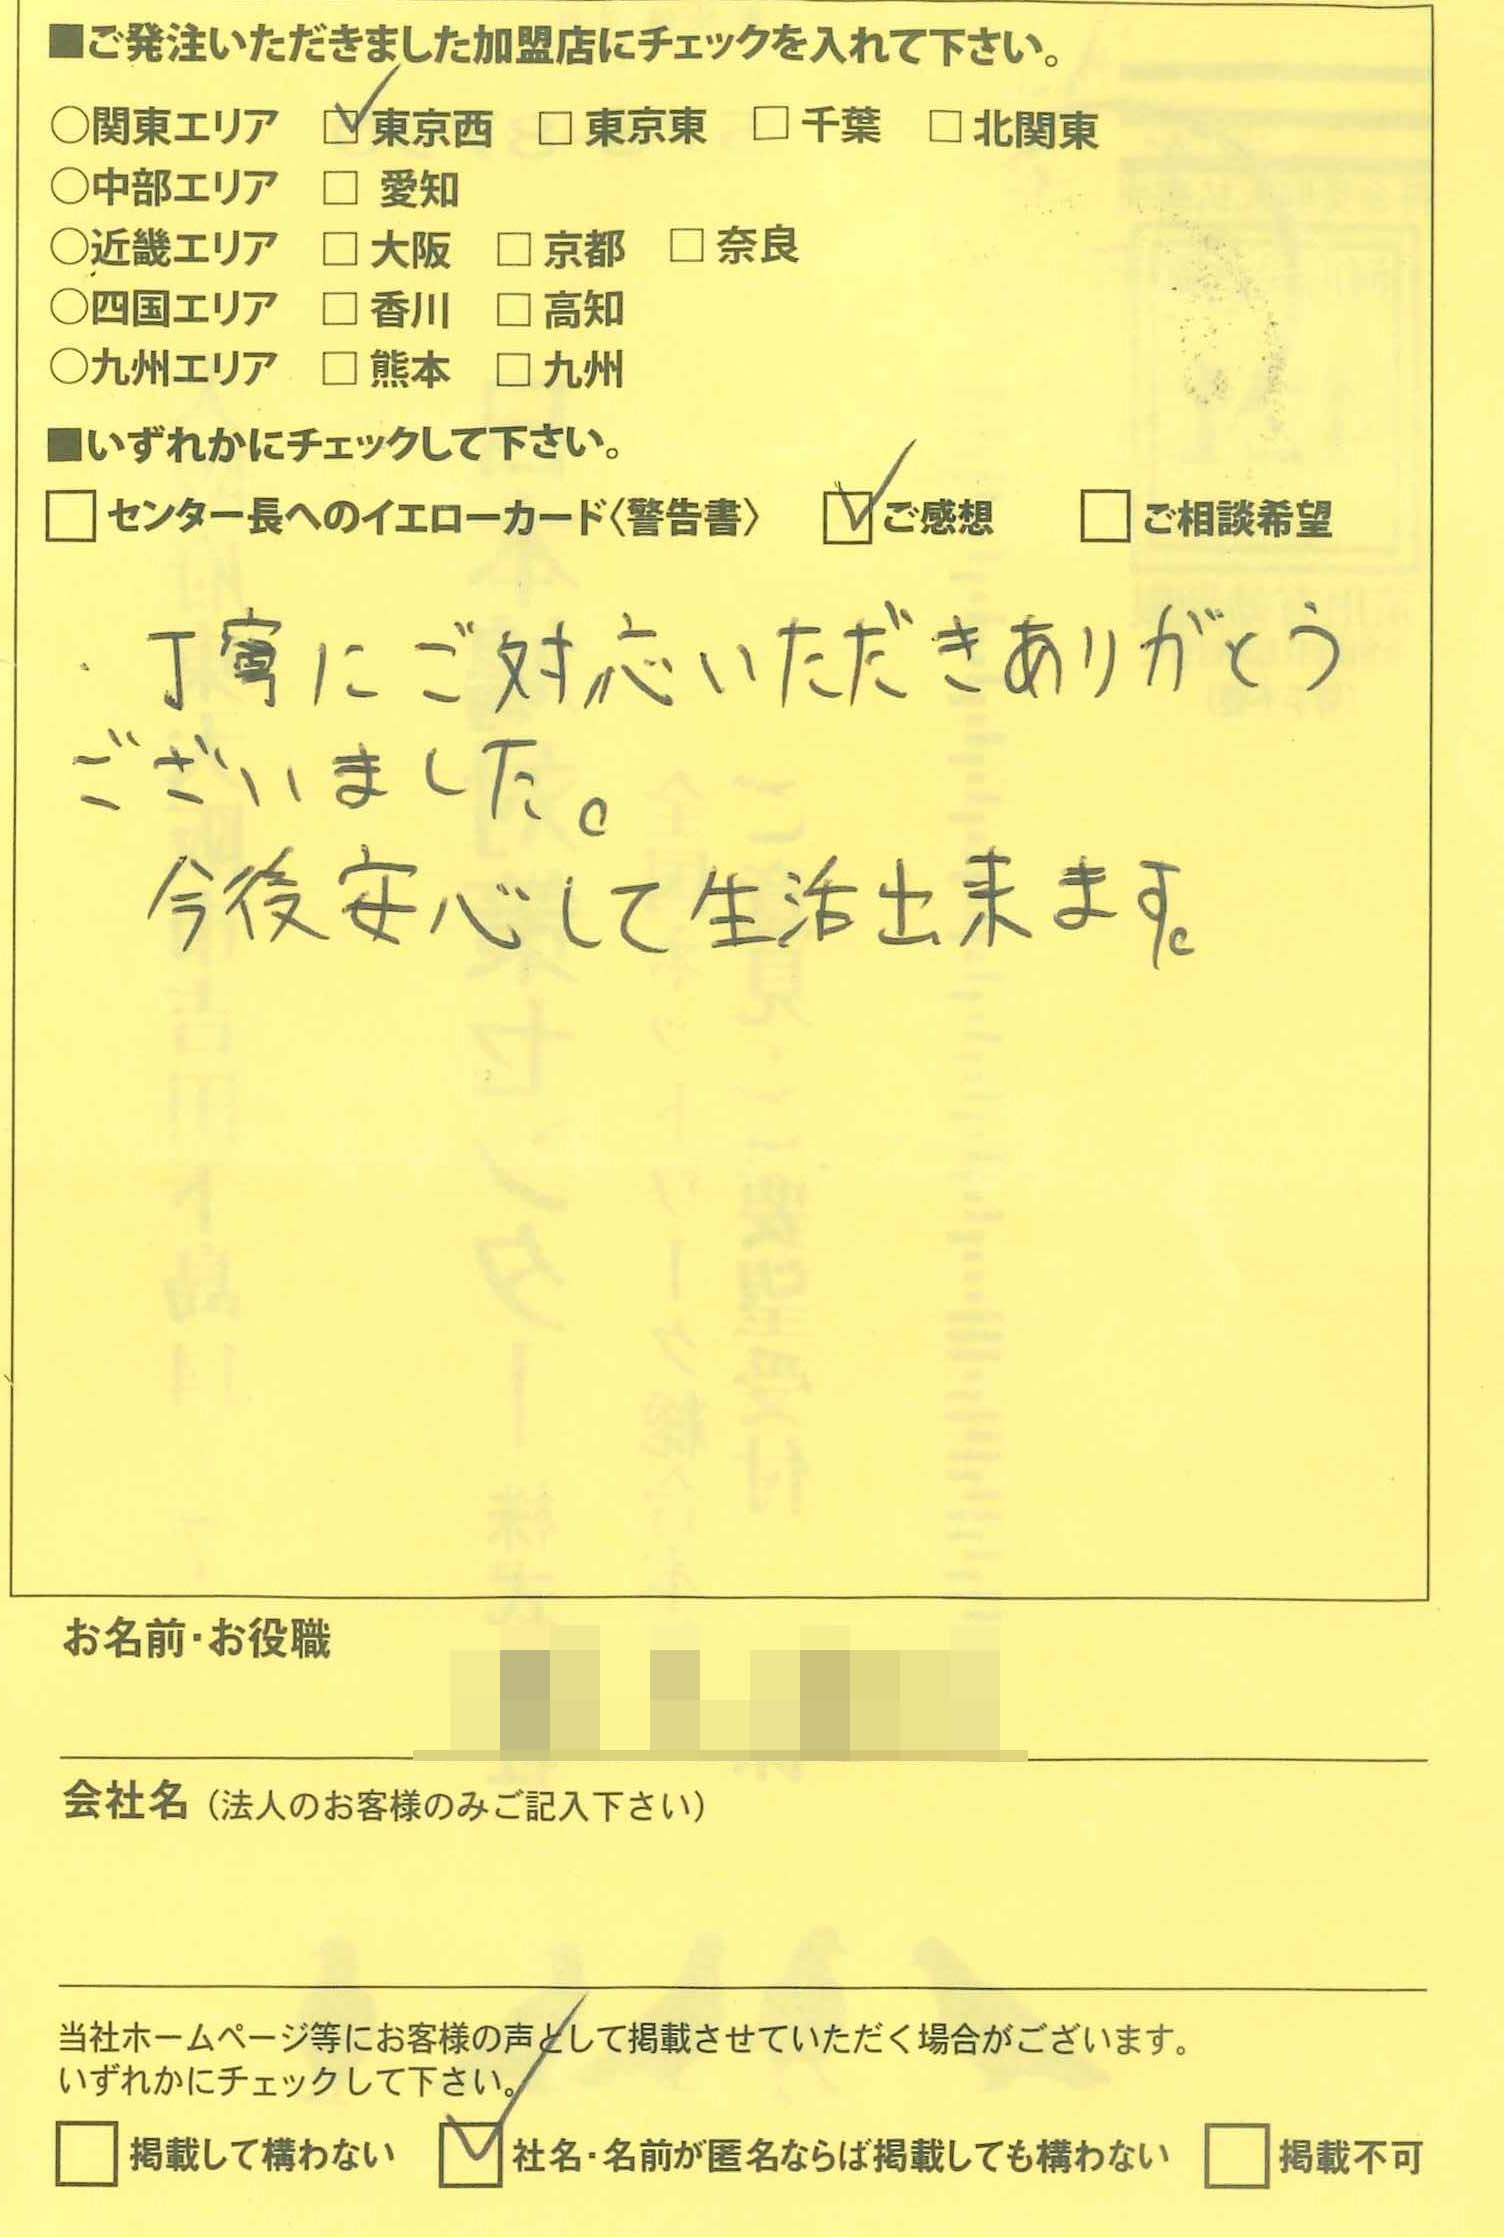 ■ご発注いただきました加盟店にチェックを入れて下さい。
○関東エリア ☑東京西 □東京東 □千葉 □北関東
○中部エリア □愛知
○近畿エリア □大阪 □京都 □奈良
○四国エリア □香川 □高知
○九州エリア □熊本 □九州
■いずれかにチェックして下さい。
□センター長へのイエローカード〈警告書〉 ☑ご感想 □ご相談希望
丁寧にご対応いただきありがとう
ございました。
今後安心して生活出来ます。
お名前・お役職
会社名（法人のお客様のみご記入下さい）
当社ホームページ等にお客様の声として掲載させていただく場合がございます。
いずれかにチェックして下さい。
□掲載して構わない ☑社名・名前が匿名ならば掲載しても構わない □掲載不可